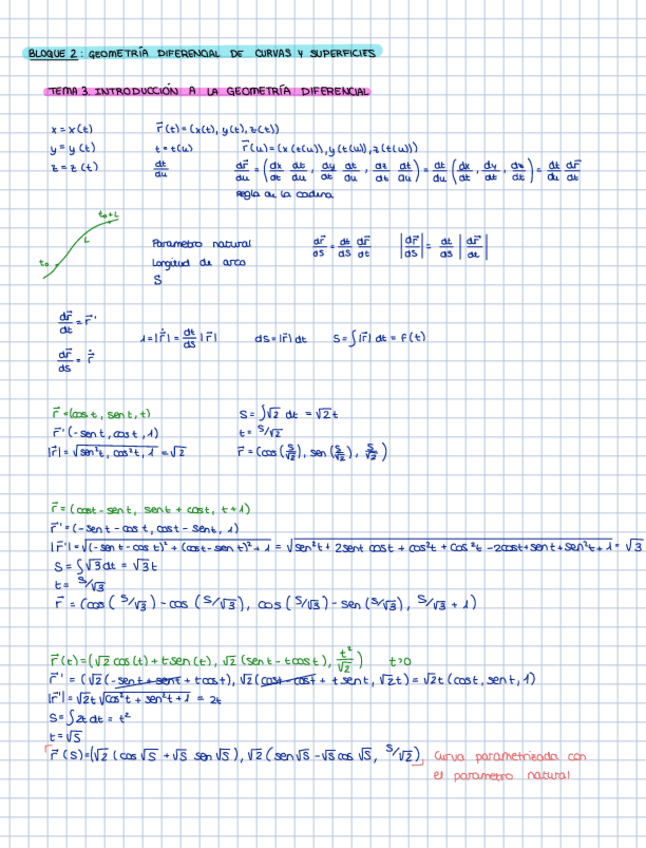 BLOQUE 2: GEOMETRÍA DIFERENCIAL DE CURVAS Y SUPERFICIES
TEMA 3. INTRODUCCIÓN A LA GEOMETRÍA DIFERENCIAL
x = x(t)   r⃗(t) = (x(t), y(t), z(t))
y = y(t)   t = t(u)   r⃗(u) = (x(t(u)), y(t(u)), z(t(u)))
z = z(t)   dt/du   dr⃗/du = (dx/dt dt/du, dy/dt dt/du, dz/dt dt/du) = dt/du (dx/dt, dy/dt, dz/dt) = dt/du dr⃗/dt
Regla de la cadena
t₀+L
L
t₀
Parametro natural   dr⃗/ds = dt/ds dr⃗/dt   |dr⃗/ds| = dt/ds |dr⃗/dt|
Longitud de arco
S
dr⃗/dt = r⃗'
1 = |ṙ⃗| = dt/ds |r⃗|   ds = |r⃗| dt   S = ∫|r⃗| dt = f(t)
dr⃗/ds = ṙ⃗
r⃗ = (cos t, sen t, t)   S = ∫√2 dt = √2t
r⃗' (-sen t, cos t, 1)   t = S/√2
|r⃗| = √(sen²t, cos²t, 1) = √2   r⃗ = (cos(S/√2), sen(S/√2), S/√2)
r⃗ = (cos t - sen t, sen t + cos t, t + 1)
r⃗' = (-sen t - cos t, cos t - sen t, 1)
|r⃗'| = √((-sen t - cos t)² + (cos t - sen t)² + 1) = √(sen²t + 2sent cost + cos²t + cos²t - 2cost + sent + sen²t + 1) = √3
S = ∫√3 dt = √3t
t = S/√3
r⃗ = (cos(S/√3) - cos(S/√3), cos(S/√3) - sen(S/√3), S/√3 + 1)
r⃗(t) = (√2 cos(t) + t sen(t), √2 (sen t - t cos t), t²/√2)   t>0
r⃗' = (√2(-sent + sent + t cos t), √2(cost - cost + t sen t, √2t) = √2t (cos t, sen t, 1)
|r⃗'| = √2t √(cos²t + sen²t + 1) = 2t
S = ∫2t dt = t²
t = √S
r⃗(S) = (√2 (cos √S + √S sen √S), √2 (sen √S - √S cos √S, S/√2) Curva parametrizada con
el parametro natural